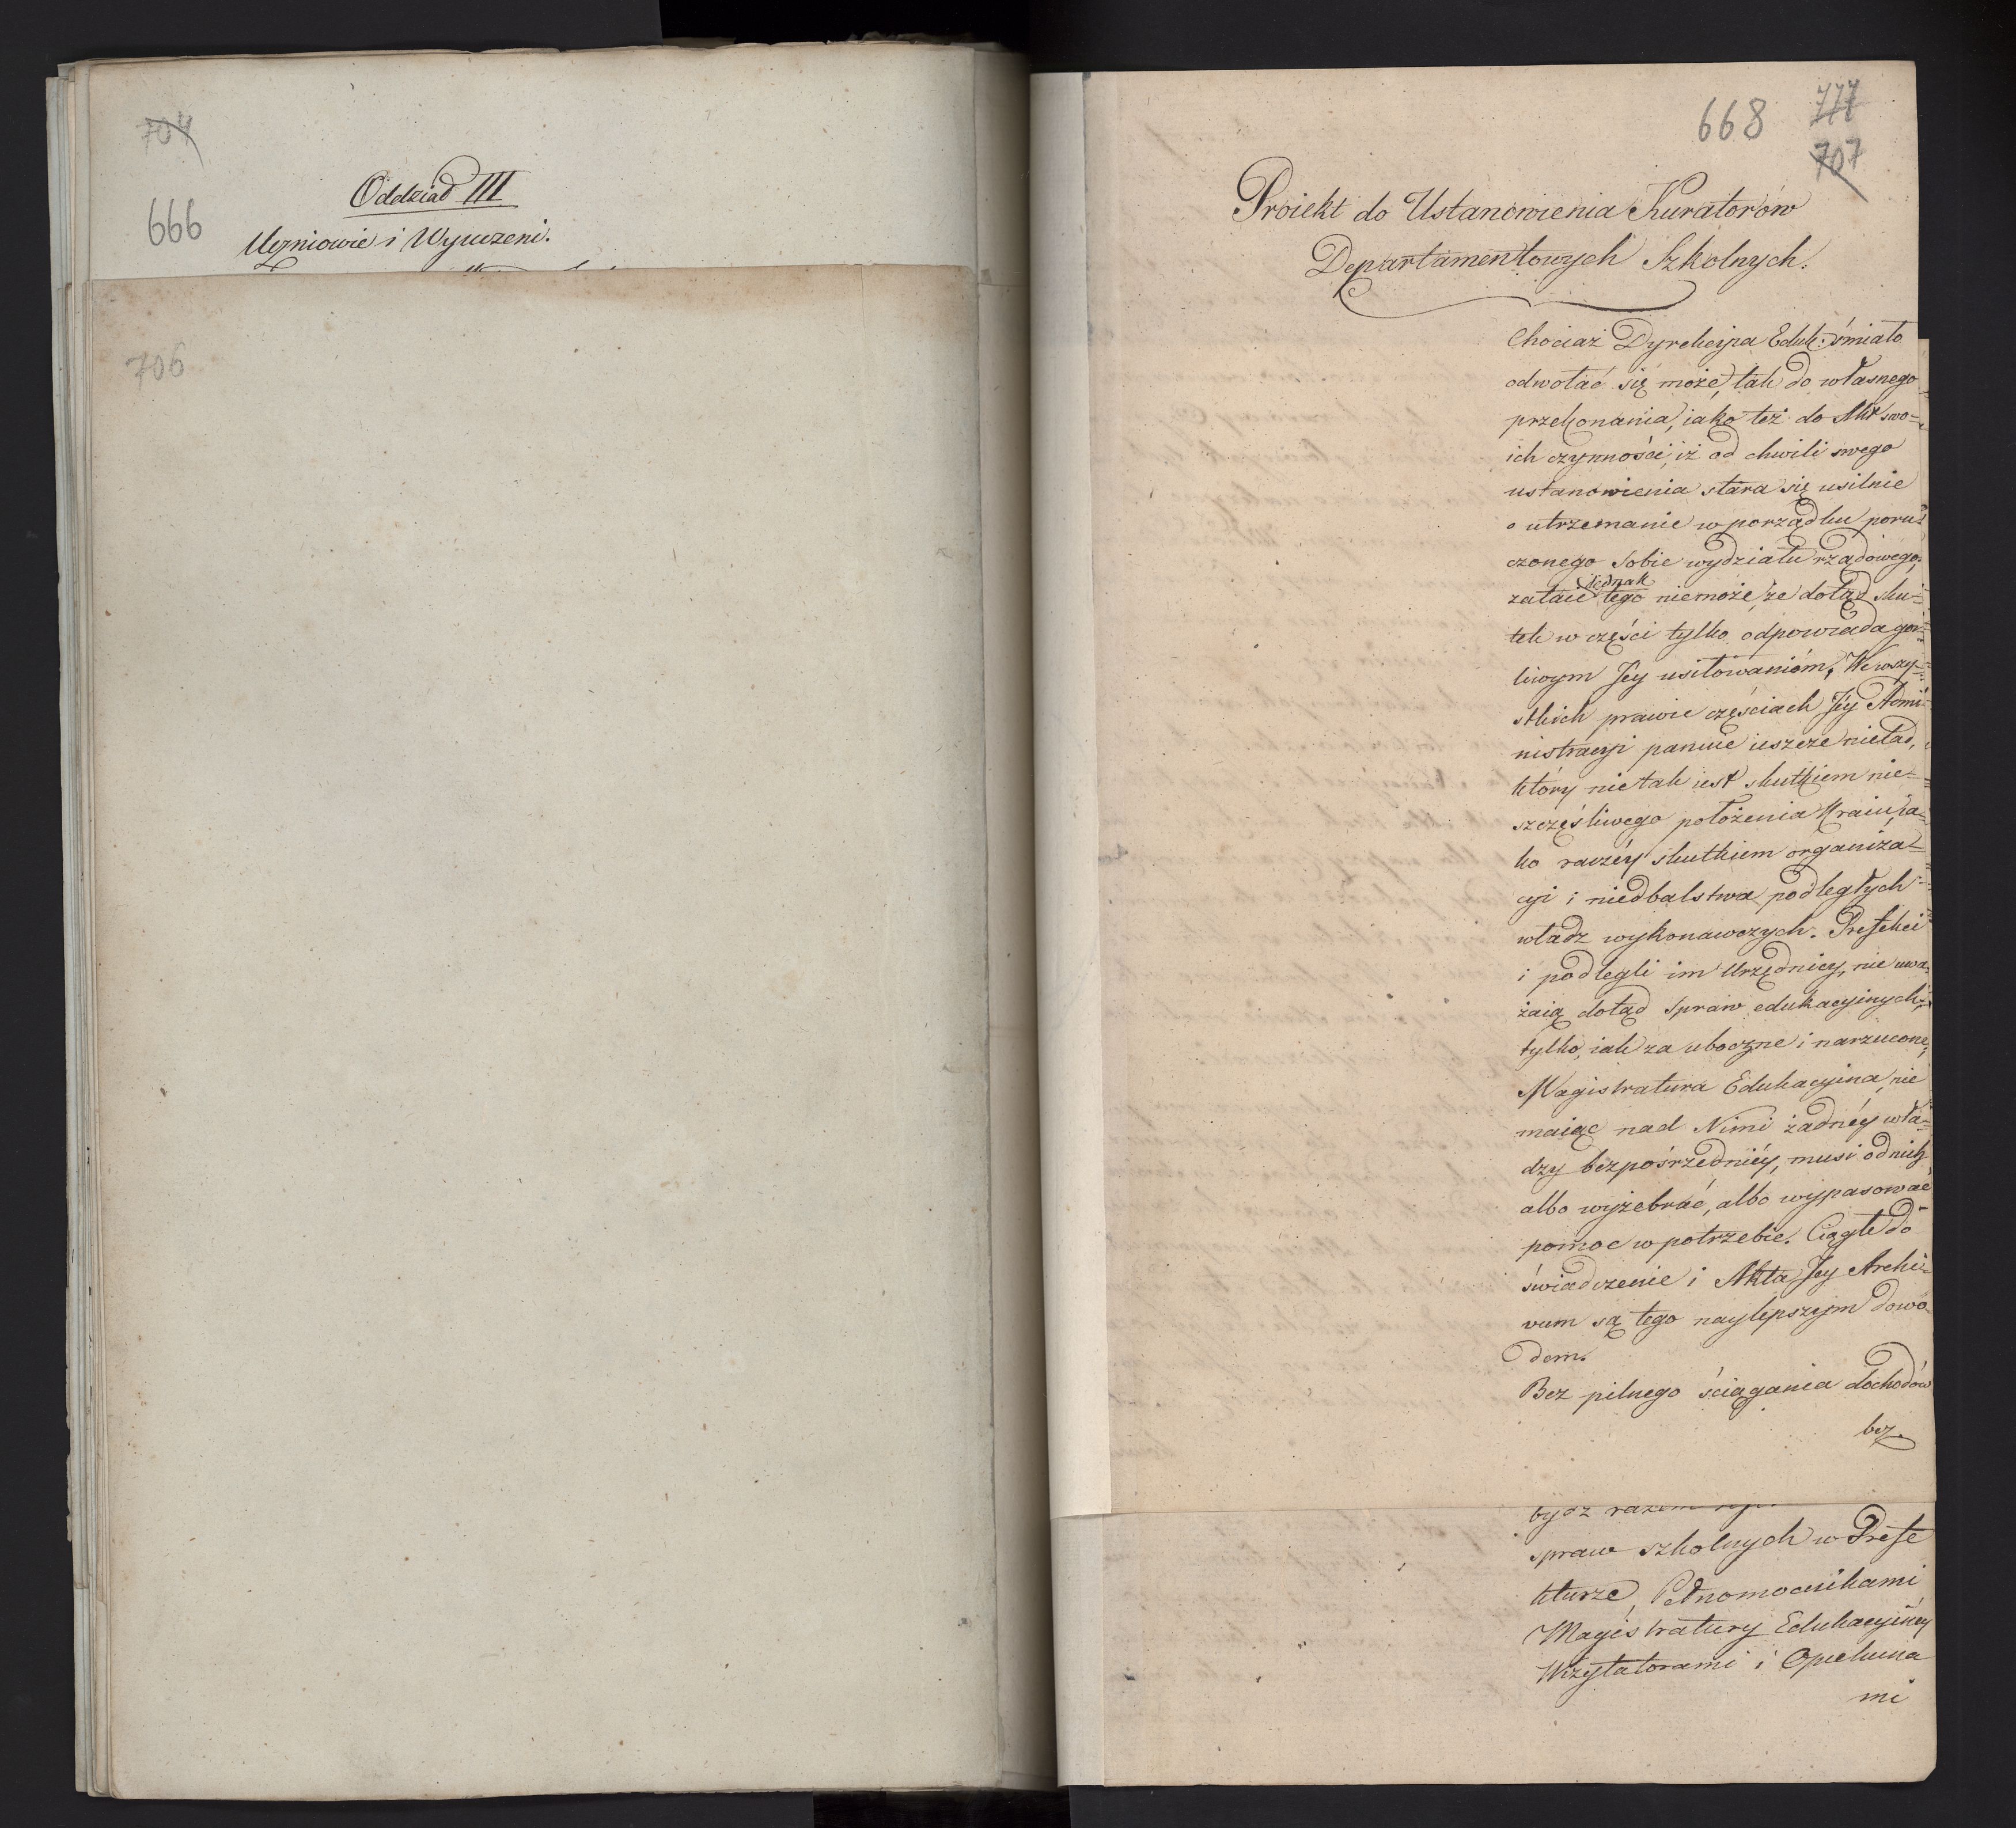 704
Oddział III
666
Uczniowie i Wyuczeni.
706
668 777
707
Proiekt do Ustanowienia Kuratorów
Departamentowych Szkolnych.
Chociaż Dyrekcyia Eduk: śmiało
odwołać się może, tak do własnego
przekonania, iako też do Akt swo-
ich czynności, iż od chwili swego
ustanowienia stara się usilnie
o utrzymanie w porządku poru-
czonego Sobie wydziału rządowego,
jednak
zataić tego niemoże, że dotąd sku-
tek w części tylko odpowiada gor-
liwym Jey usiłowaniom, We wszy-
stkich prawie częściach Jéy Admi-
nistracyi panuie ieszcze nieład,
który nie tak iest skutkiem nie-
szczęśliwego położenia Kraiu, ia-
ko raczéy skutkiem organiza-
cyi i niedbalstwa podległych
władz wykonawczych. Prefekci
i podlegli im Urzędnicy, nie uwa-
żaią dotąd spraw edukacyinych,
tylko, iak za uboczne i narzucone,
Magistratura Edukacyina, nie
maiąc nad Nimi żadnéy wła-
dzy bezpośrzedniéy, musi od nich
albo wyżebrać, albo wypasować
pomoc w potrzebie. Ciągłe do
świadczenie i Akta Jey Archi-
vum są tego naylepszym dowo-
dem.
Bez pilnego ściągania dochodów
bez
bydz razem
spraw szkolnych w Prefe
kturze, Pełnomocnikami
Magistratury Edukacyinéy
Wizytatorami i Opiekuna
mi